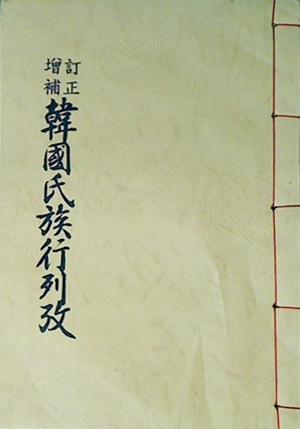 訂正
增補
韓國氏族行列攷